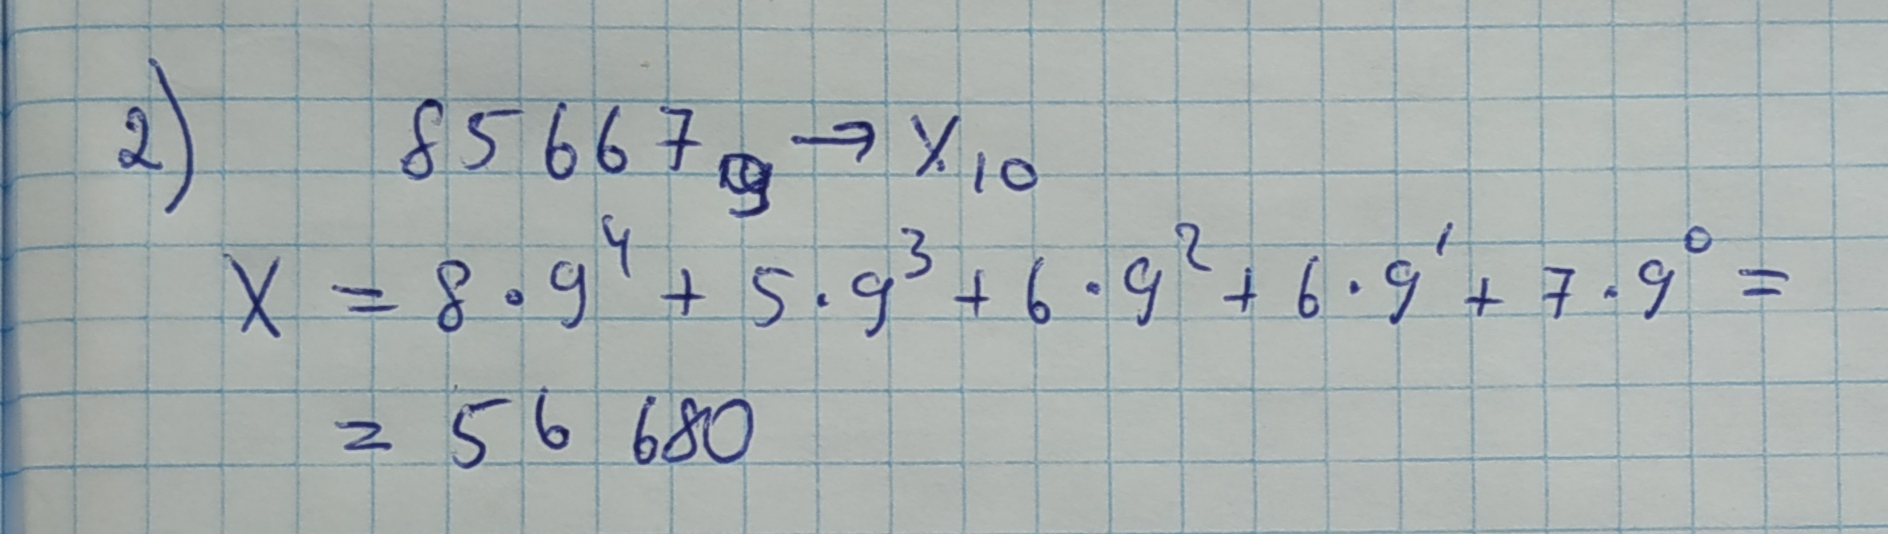 2) 85667₉ → X₁₀
X = 8·9⁴ + 5·9³ + 6·9² + 6·9¹ + 7·9⁰ =
= 56 680